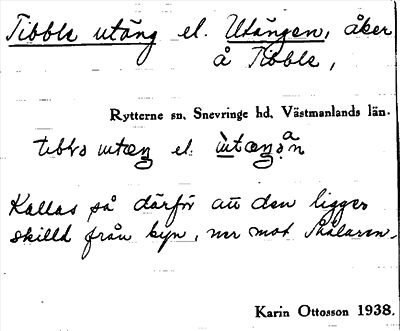 Tibble utäng el. Utängen, åker
å Tibble,
Rytterne sn, Snevringe hd, Västmanlands län.
el.
Kallas så därför att den ligger
skilld från byn, ner mot Mälaren.
Karin Ottosson 1938.